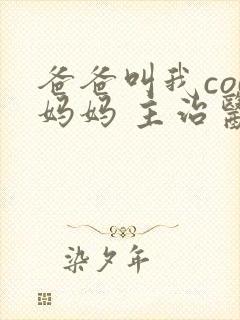 爸爸叫我co
妈妈 主治醫
染夕年